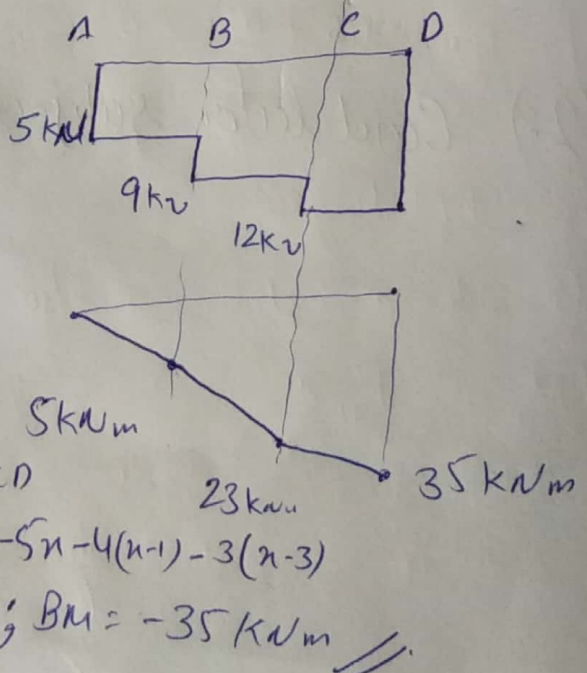 A B C D
5kN
9kN
12kN
5kNm
23kNm
35kNm
CD
-5x-4(x-1)-3(x-3)
; BM = -35 KNm